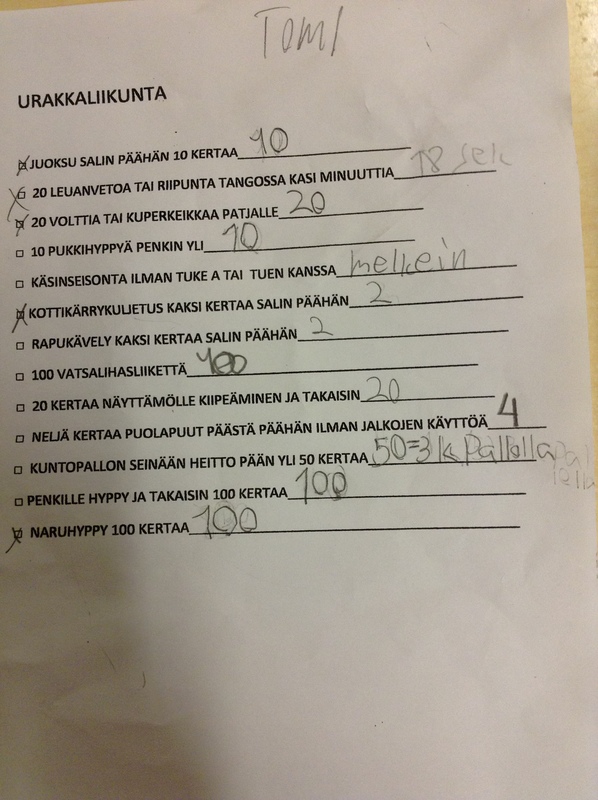 TOMI
URAKKALIIKUNTA
JUOKSU SALIN PÄÄHÄN 10 KERTAA 10
20 LEUANVETOA TAI RIIPUNTA TANGOSSA KASI MINUUTTIA 18 sek
20 VOLTTIA TAI KUPERKEIKKAA PATJALLE 20
10 PUKKIHYPPYÄ PENKIN YLI 10
KÄSINSEISONTA ILMAN TUKE A TAI TUEN KANSSA melkein
KOTTIKÄRRYKULJETUS KAKSI KERTAA SALIN PÄÄHÄN 2
RAPUKÄVELY KAKSI KERTAA SALIN PÄÄHÄN 2
100 VATSALIHASLIIKETTÄ 100
20 KERTAA NÄYTTÄMÖLLE KIIPEÄMINEN JA TAKAISIN 20
NELJÄ KERTAA PUOLAPUUT PÄÄSTÄ PÄÄHÄN ILMAN JALKOJEN KÄYTTÖÄ 4
KUNTOPALLON SEINÄÄN HEITTO PÄÄN YLI 50 KERTAA 50=3k Pallolla
PENKILLE HYPPY JA TAKAISIN 100 KERTAA 100
NARUHYPPY 100 KERTAA 100